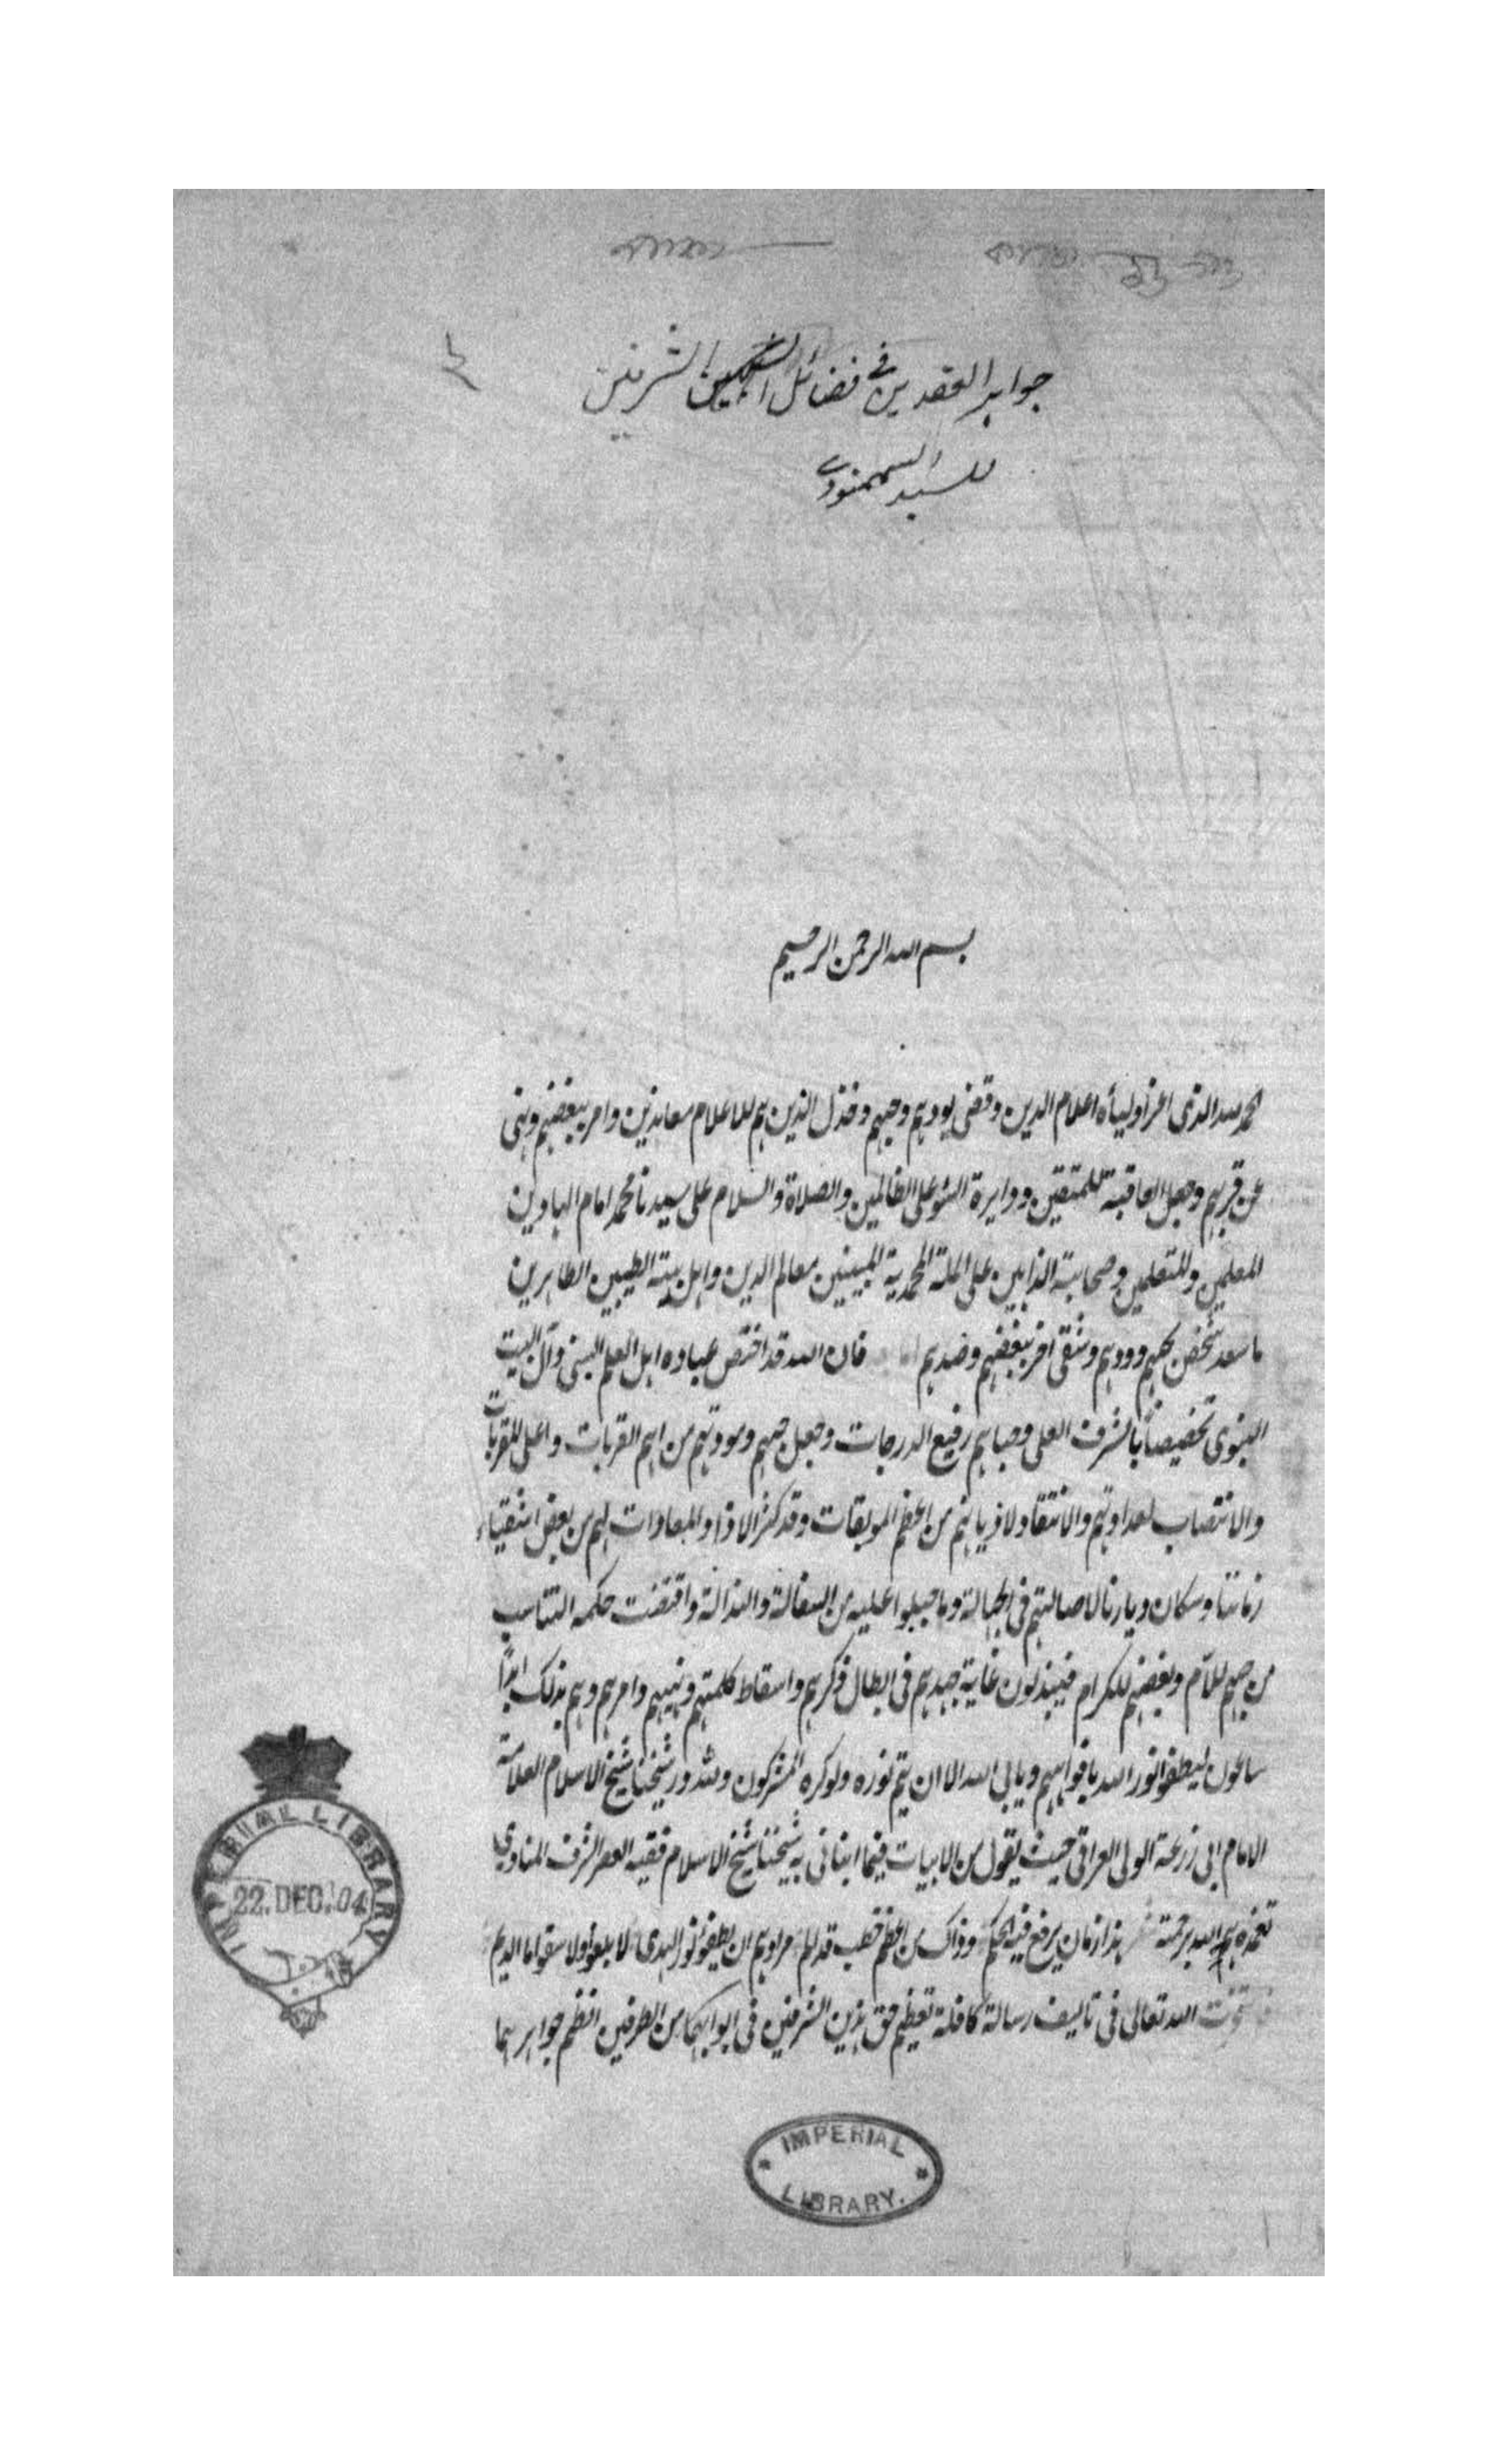 جواهر العقدين في فضائل الشرفين
للسيد السمهودي
بسم الله الرحمن الرحيم
الحمد لله الذى اعز اولياءه اعلام الدين وقضى بودهم وحبهم وخذل الذين هم للاعلام معاندين وامر ببغضهم ونهى
عن قربهم وجعل العاقبة للمتقين ودايرة السوء على الظالمين والصلاة والسلام على سيدنا محمد امام الهادين
المعلمين والمتعلمين وصحابته الذابين على الملة المحمدية المبينين معالم الدين واهل بيته الطيبين الطاهرين
ما سعد شخص بحبهم وودهم وشقى آخر ببغضهم وضدهم فان الله قد اختص عباده اهل العلم السنى وآل البيت
النبوى تخصيصاً بالشرف العلى وحباهم رفيع الدرجات وجعل حبهم ومودتهم من اهم القربات واعلى للقربات
والانتصاب لعداوتهم والانتقاد لاذياتهم من اعظم الموبقات وقد كثر الاذا والمعادات لهم من بعض اشقياء
زماننا وسكان ديارنا لاصالتهم فى الجهالة وما جبلوا عليه من السفالة والنذالة واقتضت حكمه التناسب
من حبهم للئام وبغضهم للكرام فيبذلون غاية جهدهم فى ابطال ذكرهم واسقاط كلمتهم ونهيهم وامرهم وهم بذلك ابداً
ساعون ليطفوا نور الله بافواههم ويابى الله الا ان يتم نوره ولو كره المشركون ولله در شيخنا شيخ الاسلام العلامة
الامام ابى زرعة الولى العراقى حيث يقول من الابيات فيما انبانى به شيخنا شيخ الاسلام فقيه العصر الشرف المناوى
تغمدهم الله برحمته هذا زمان يرفع فيه الحكم وذاك من اعظم خطب قد الم مرادهم ان يطفؤ نور الهدى لا بلغوا ولا سقوا ماء الديم
الله تعالى فى تاليف رسالة كافلة تعظيم حق هذين الشرفين فى ابوابهما من الطرفين انظم جواهرهما
IMPERIAL LIBRARY
22.DEC.04
IMPERIAL
LIBRARY.